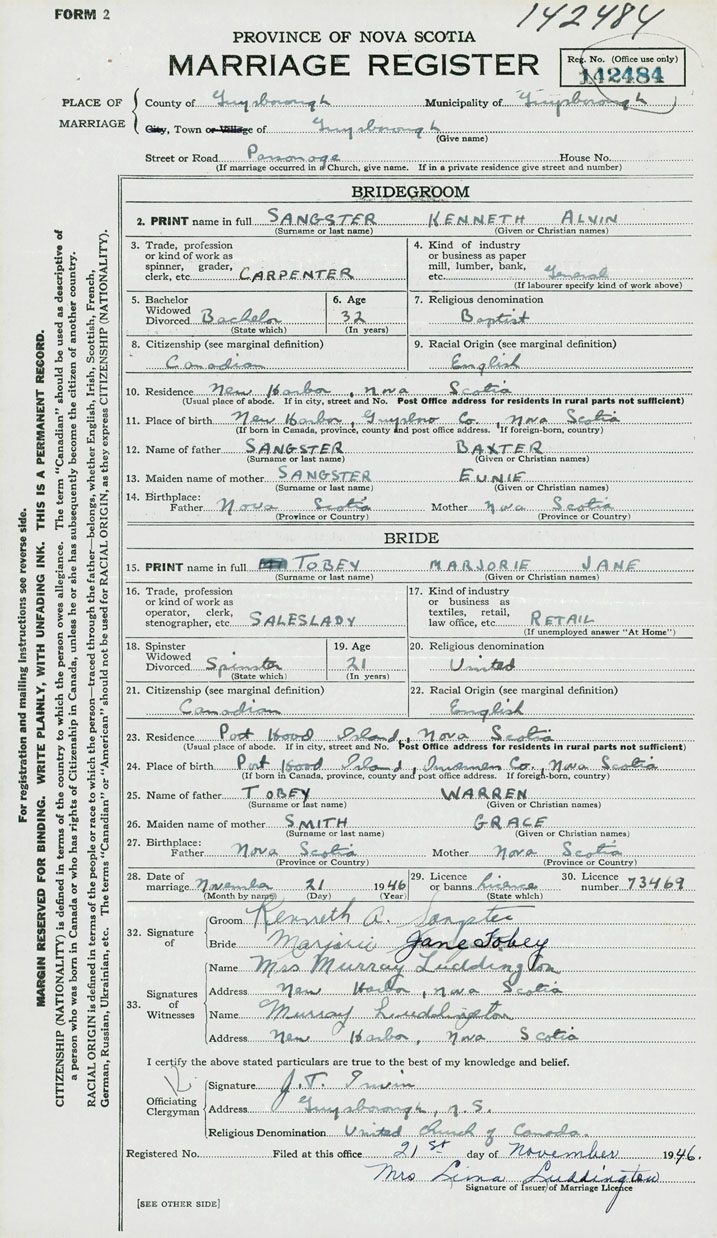 FORM 2
142484
PROVINCE OF NOVA SCOTIA
MARRIAGE REGISTER
Reg. No. (Office use only)
142484
PLACE OF MARRIAGE
County of Guysborough Municipality of Guysborough
City, Town or Village of Guysborough
(Give name)
Street or Road Parsonage House No.
(If marriage occurred in a Church, give name. If in a private residence give street and number)
BRIDEGROOM
2. PRINT name in full SANGSTER KENNETH ALVIN
(Surname or last name) (Given or Christian names)
3. Trade, profession or kind of work as spinner, grader, clerk, etc. CARPENTER
4. Kind of industry or business as paper mill, lumber, bank, etc. General
(If labourer specify kind of work above)
5. Bachelor Widowed Divorced Bachelor
(State which)
6. Age 32
(In years)
7. Religious denomination
Baptist
8. Citizenship (see marginal definition)
Canadian
9. Racial Origin (see marginal definition)
English
10. Residence New Harbor, Nova Scotia
(Usual place of abode. If in city, street and No. Post Office address for residents in rural parts not sufficient)
11. Place of birth New Harbor, Guysboro Co. Nova Scotia
(If born in Canada, province, county and post office address. If foreign-born, country)
12. Name of father SANGSTER BAXTER
(Surname or last name) (Given or Christian names)
13. Maiden name of mother SANGSTER EUNIE
(Surname or last name) (Given or Christian names)
14. Birthplace:
Father Nova Scotia Mother Nova Scotia
(Province or Country) (Province or Country)
BRIDE
15. PRINT name in full TOBEY MARJORIE JANE
(Surname or last name) (Given or Christian names)
16. Trade, profession or kind of work as operator, clerk, stenographer, etc. SALESLADY
17. Kind of industry or business as textiles, retail, law office, etc. RETAIL
(If unemployed answer "At Home")
18. Spinster Widowed Divorced Spinster
(State which)
19. Age 21
(In years)
20. Religious denomination
United
21. Citizenship (see marginal definition)
Canadian
22. Racial Origin (see marginal definition)
English
23. Residence Port Hood Island, Nova Scotia
(Usual place of abode. If in city, street and No. Post Office address for residents in rural parts not sufficient)
24. Place of birth Port Hood Island, Co., Nova Scotia
(If born in Canada, province, county and post office address. If foreign-born, country)
25. Name of father TOBEY WARREN
(Surname or last name) (Given or Christian names)
26. Maiden name of mother SMITH GRACE
(Surname or last name) (Given or Christian names)
27. Birthplace:
Father Nova Scotia Mother Nova Scotia
(Province or Country) (Province or Country)
28. Date of marriage November 21 1946
(Month by name) (Day) (Year)
29. Licence or banns Licence
(State which)
30. Licence number 73469
32. Signature of
Groom Kenneth A. Sangster
Bride Marjorie Jane Tobey
33. Signatures of Witnesses
Name Mrs Murray Luddington
Address New Harbor, Nova Scotia
Name Murray Luddington
Address New Harbor, Nova Scotia
I certify the above stated particulars are true to the best of my knowledge and belief.
Officiating Clergyman
Signature J. T. Irwin
Address Guysborough, N.S.
Religious Denomination United Church of Canada.
Registered No. Filed at this office 21st day of November 1946.
Mrs Luddington
Signature of Issuer of Marriage Licence
[SEE OTHER SIDE]
For registration and mailing instructions see reverse side.
MARGIN RESERVED FOR BINDING. WRITE PLAINLY, WITH UNFADING INK. THIS IS A PERMANENT RECORD.
CITIZENSHIP (NATIONALITY) is defined in terms of the country to which the person owes allegiance. The term "Canadian" should be used as descriptive of
a person who was born in Canada or who has rights of Citizenship in Canada, unless he or she has subsequently become the citizen of another country.
RACIAL ORIGIN is defined in terms of the people or race to which the person—traced through the father—belongs, whether English, Irish, Scottish, French,
German, Russian, Ukrainian, etc. The terms "Canadian" or "American" should not be used for RACIAL ORIGIN, as they express CITIZENSHIP (NATIONALITY).